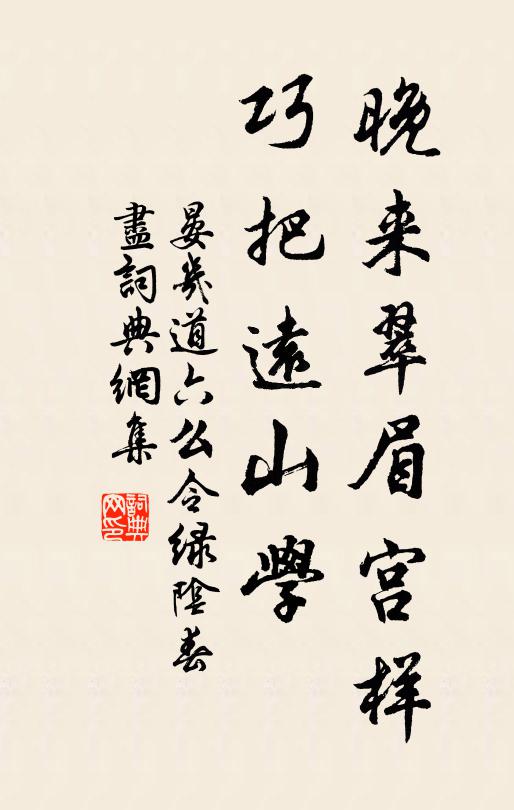 晚来翠眉宫样
巧把遠山學
晏幾道六么令绿陰春
盡詞典網集
詞典网印